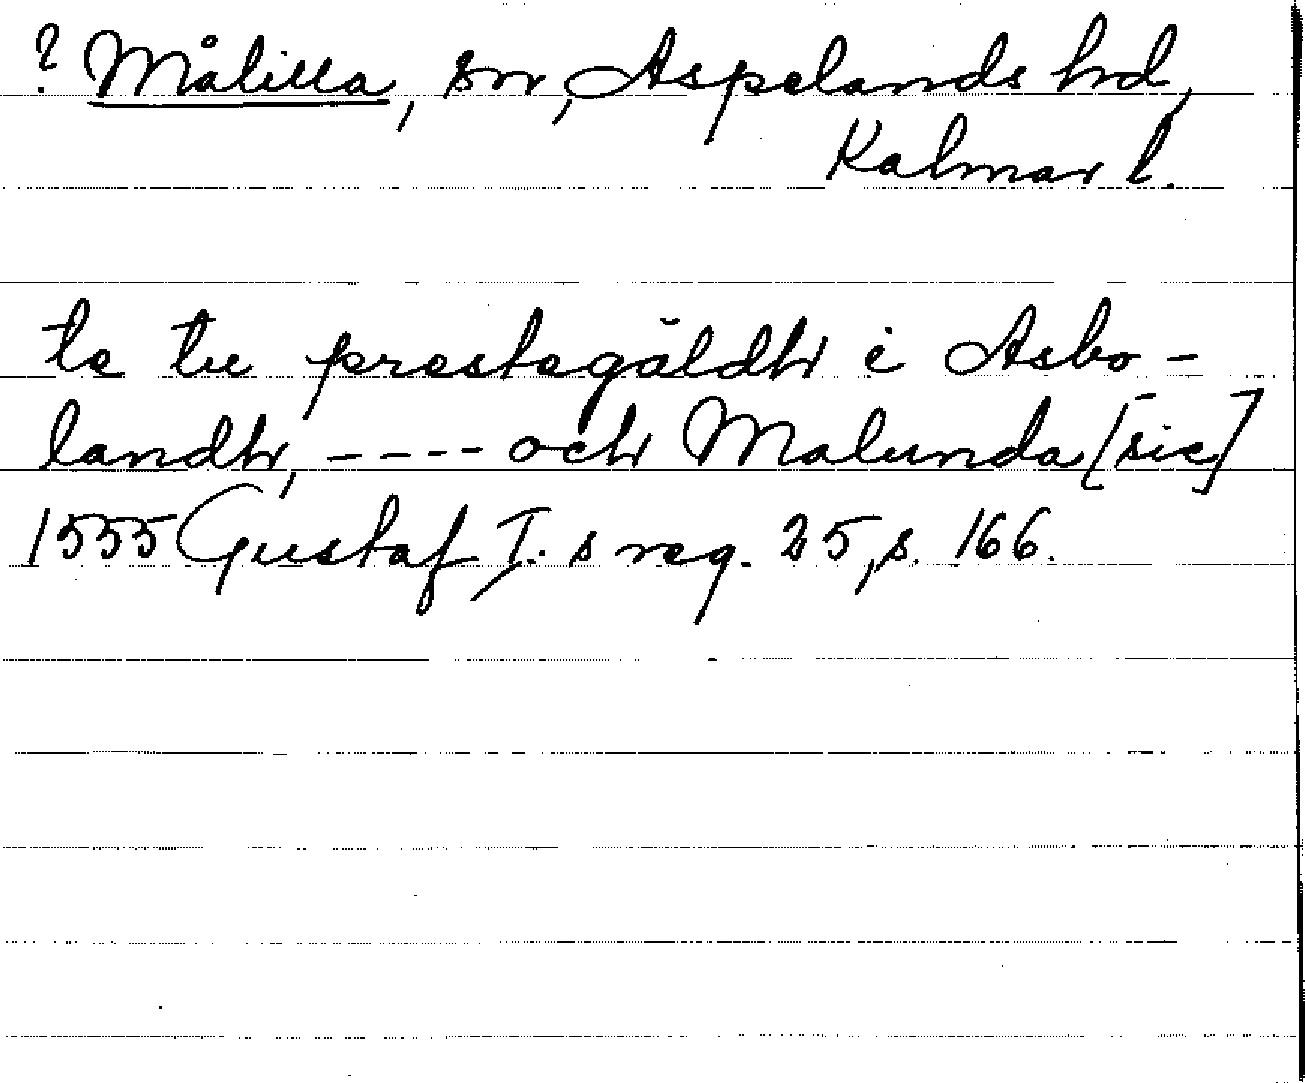 ? Målilla, sn, Aspelands hd,
Kalmar l.
te tu prestegäldh i Asbo-
landh, ---- och Malunda [sic]
1555 Gustaf I:s reg. 25, s. 166.